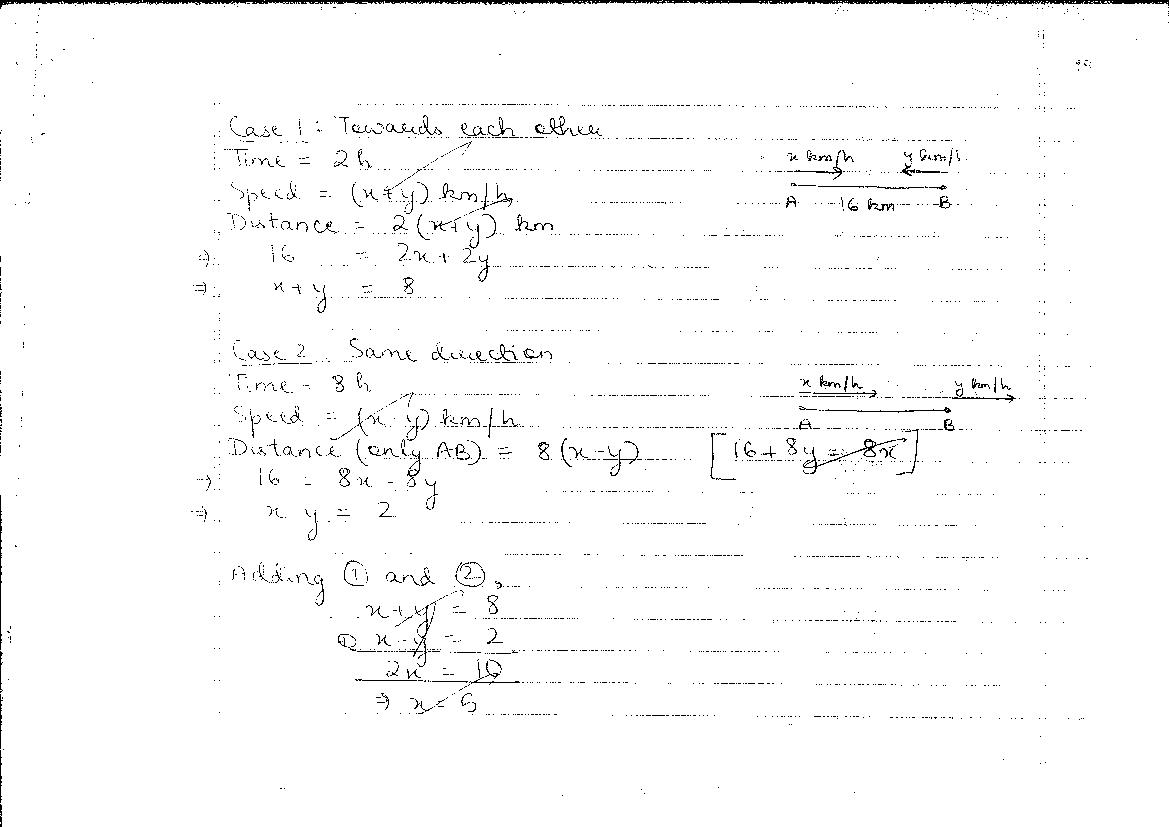 Case 1 : Towards each other
Time = 2h
x km/h y km/h
Speed = (x+y) km/h
A 16 km B
Distance = 2(x+y) km
⇒ 16 = 2x + 2y
⇒ x+y = 8
Case 2 Same direction
Time = 8h
x km/h y km/h
Speed = (x-y) km/h
A B
Distance (only AB) = 8(x-y) [16+8y = 8x]
⇒ 16 = 8x - 8y
⇒ x y = 2
Adding ① and ②,
x+y = 8
x-y = 2
2x = 10
⇒ x = 5